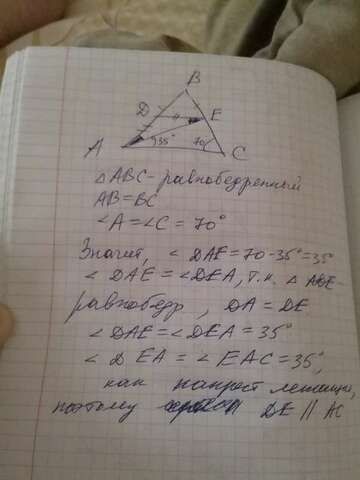 B
D E
A 35° 70° C
△ABC - равнобедренный
AB=BC
∠A=∠C=70°
Значит, ∠DAE=70-35°=35°
∠DAE=∠DEA, т.к. △ADE-
равнобедр, DA=DE
∠DAE=∠DEA=35°
∠DEA=∠EAC=35°,
как напрест лежащие,
поэтому DE || AC